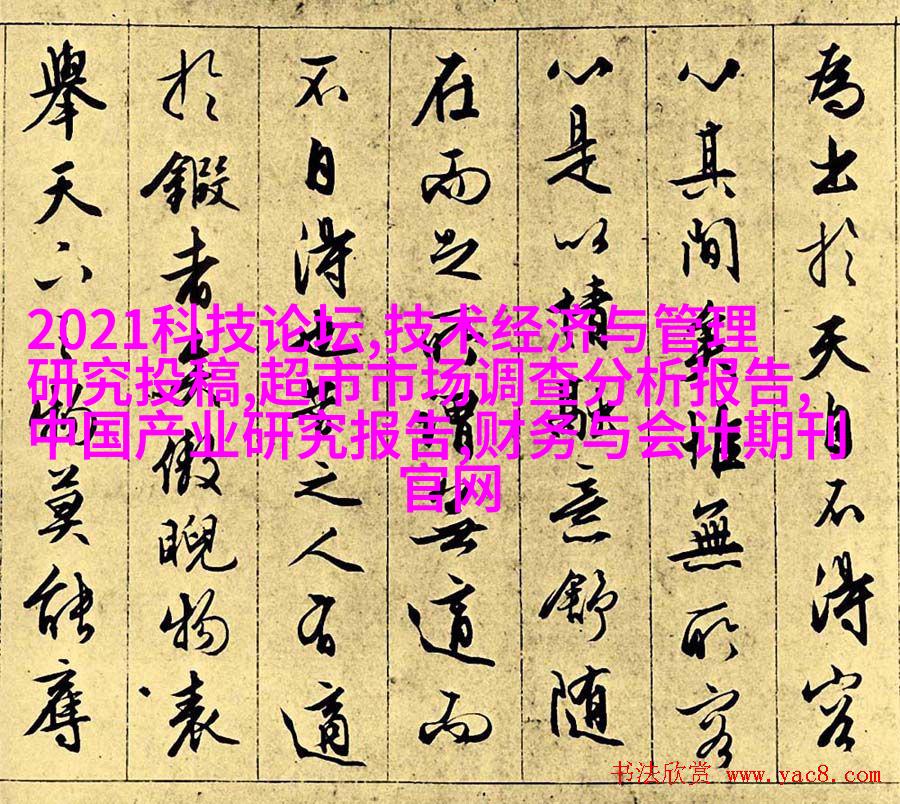 為出於天自不得容
心其間矣惟無所容
心是以精融意舒随
在而足所謂無適而
不自得也古之人有適
於鍜者矣傲睨物表
舉天下之物莫能奪
2021科技论坛,技术经济与管理
研究投稿,超市市场调查分析报告,
中国产业研究报告,财务与会计期刊
官网
书法欣赏 www.yac8.com